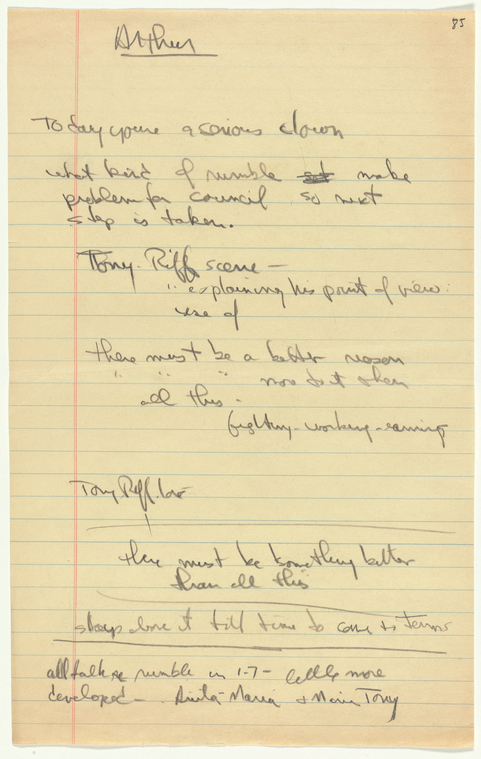 85
Arthur
Today you're a serious clown
what kind of rumble make
problem for council so next
step is taken.
Tony. Riff scene —
" explaining his point of view:
use of
there must be a better reason
" " " more to it than
all this -
fighting - working - earning
Tony Riff
there must be something better
than all this
above it till time to come to terms
all talk re rumble in 1-7 - little more
developed - Anita-Maria + Maria Tony